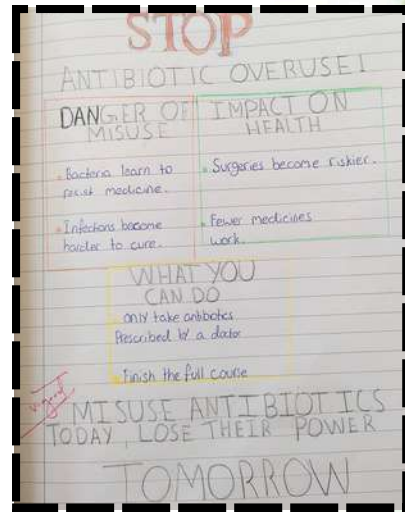 STOP
ANTIBIOTIC OVERUSE!
DANGER OF
MISUSE
• Bacteria learn to
resist medicine.
• Infections become
harder to cure.
IMPACT ON
HEALTH
• Surgeries become riskier.
• Fewer medicines
work.
WHAT YOU
CAN DO
• only take antibiotics
Prescribed by a doctor
• Finish the full course
MISUSE ANTIBIOTICS
TODAY, LOSE THEIR POWER
TOMORROW